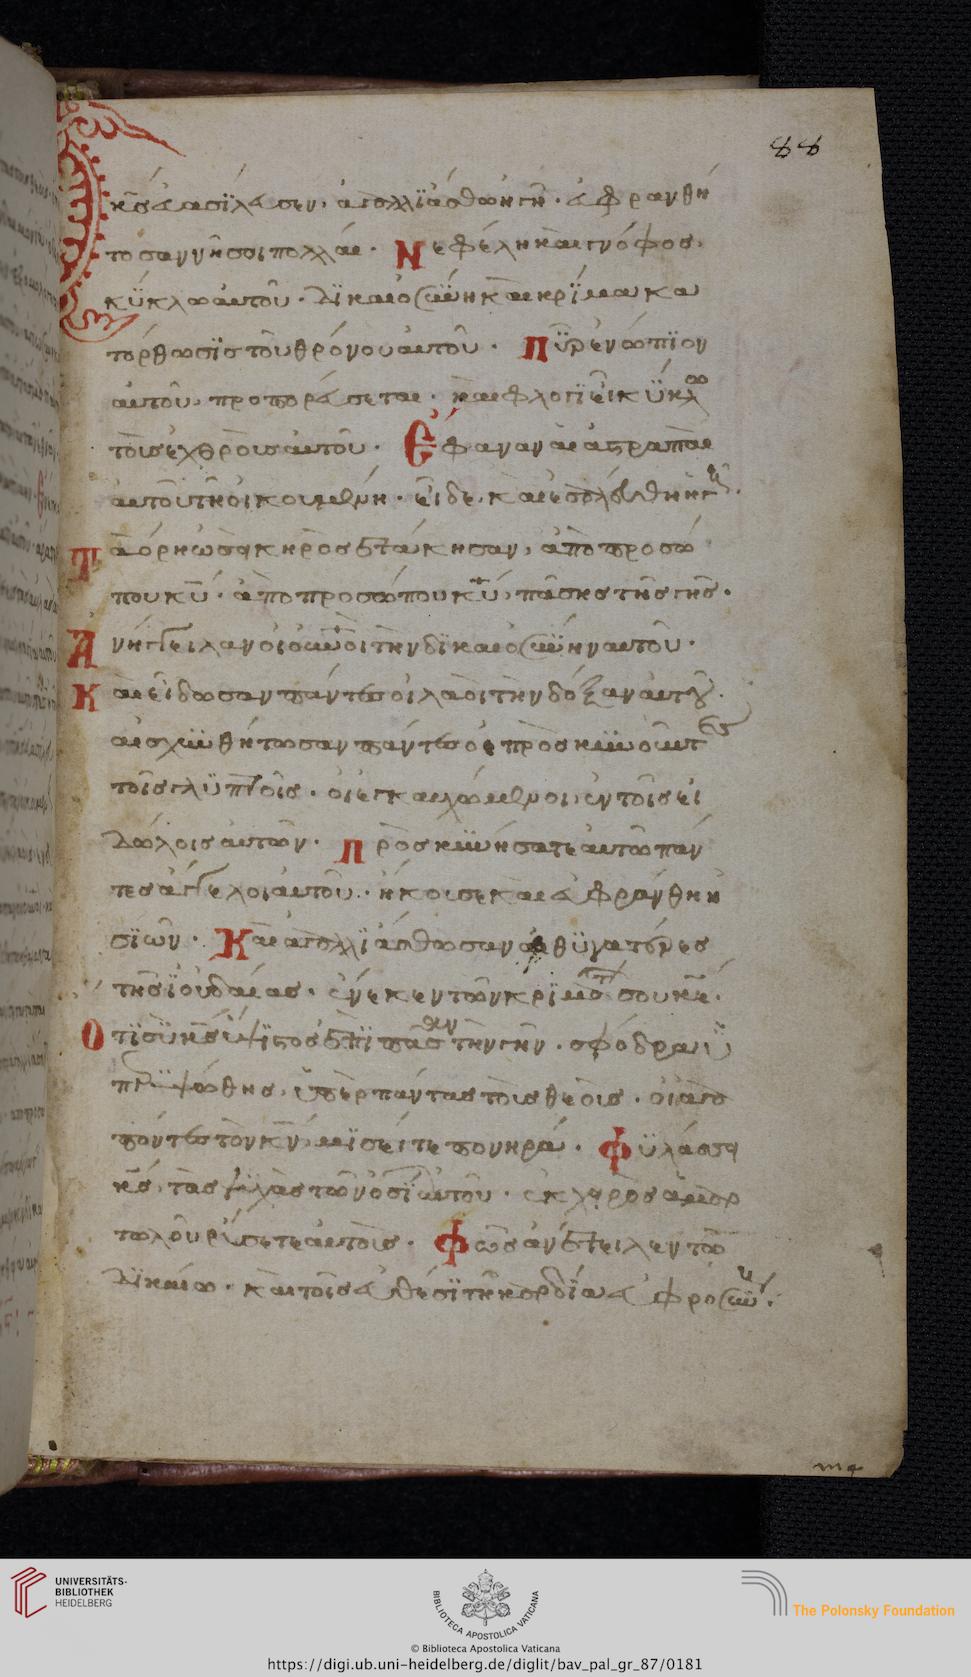 88
κ̅ς̅ ἐβασίλευσεν, ἀγαλλιάσθω ἡ γῆ · εὐφρανθή
τωσαν νῆσοι πολλαί · Νεφέλη καὶ γνόφος,
κύκλω αὐτοῦ · δικαιοσύνη καὶ κρίμα κα
τόρθωσις τοῦ θρόνου αὐτοῦ · Πῦρ ἐνώπιον
αὐτοῦ, προπορεύσεται · καὶ φλογιεῖ κύκλω
τοὺς ἐχθροὺς αὐτοῦ · Ἔφαναν αἱ ἀστραπαὶ
αὐτοῦ τῆ οἰκουμένη · εἶδε, καὶ ἐσαλεύθη ἡ γῆ ·
Τὰ ὄρη ὡσεὶ κηρὸς ἐτάκησαν, ἀπὸ προσώ
που κ̅υ̅ · ἀπὸ προσώπου κ̅υ̅, πάσης τῆς γῆς ·
Ἀνήγγειλαν οἱ οὐ̅νοὶ τὴν δικαιοσύνην αὐτοῦ ·
Καὶ εἴδωσαν πάντες οἱ λαοὶ τὴν δόξαν αὐτοῦ ·
αἰσχυνθήτωσαν πάντες οἱ προσκυνοῦντες
τοῖς γλυπτοῖς · οἱ ἐγκαυχώμενοι ἐν τοῖς εἰ
δώλοις αὐτῶν · Προσκυνήσατε αὐτῶ πάν
τες ἄγγελοι αὐτοῦ · ἤκουσε καὶ εὐφράνθη ἡ
σιών · Καὶ ἀγαλλιάσθωσαν αἱ θυγατέρες
τῆς ἰουδαίας · ἕνεκεν τῶν κριμάτ σου κ̅ε̅ ·
Ὅτι σὺ κ̅ς̅ ὕψιστος ἐπὶ πᾶσαν τὴν γῆν · σφόδρα ὑ
περυψώθης, ὑπὲρ πάντας τοὺς θεούς · οἱ ἀγα
πῶντες τὸν κ̅ν̅, μισεῖτε πονηρά · Φυλάσσει
κ̅ς̅, τὰς ψυχὰς τῶν ὁσίων αὐτοῦ · ἐκ χειρὸς ἁμαρ
τωλοῦ ρύσεται αὐτούς · Φῶς ἀνέτειλεν τῶ
δικαίω · καὶ τοῖς εὐθέσι τῆ καρδία εὐφροσύνη ·
UNIVERSITÄTS-
BIBLIOTHEK
HEIDELBERG
BIBLIOTECA APOSTOLICA VATICANA
The Polonsky Foundation
© Biblioteca Apostolica Vaticana
https://digi.ub.uni-heidelberg.de/diglit/bav_pal_gr_87/0181